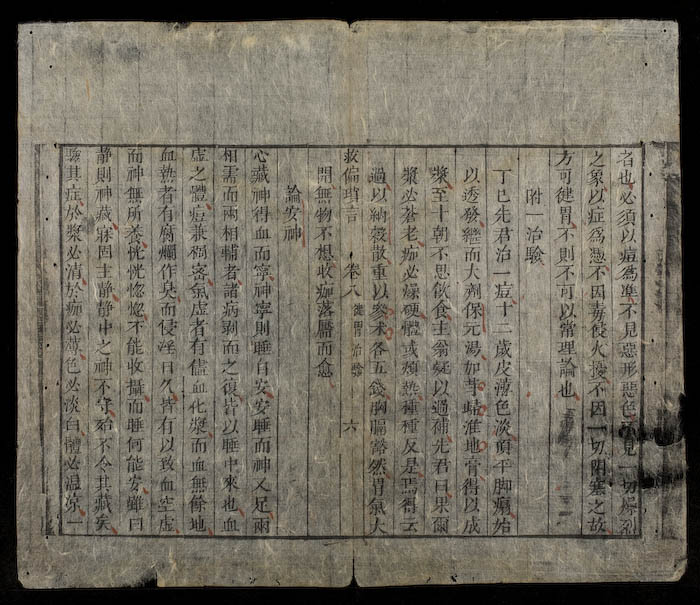 者也必須以痘爲準不見惡形惡色不見一切燥烈
之象以症爲憑不因毒侵火擾不因一切阻塞之故
方可健胃不則不可以常理論也
附一治驗
丁巳先君治一痘十二歲皮薄色淡頂平脚癟始
以透發繼而大劑保元湯加芎蛄淮地膏得以成
漿至十朝不思飲食主翁疑以過補先君曰果爾
漿必蒼老痂必燥硬體或煩熱種種反是焉得云
過以納穀散重以參朮各五錢胸膈豁然胃氣大
開無物不想收痂落靨而愈
救偏瑣言 卷八 健胃治驗 六
論安神
心藏神得血而寧神寧則睡自安安睡而神又足兩
相需而兩相輔者諸病剥而之復皆以睡中來也血
虛之體痘兼稠密氣虛者有儘血化漿而血無餘地
血熱者有腐爛作臭而侵淫日久皆有以致血空虛
而神無所養恍恍惚惚不能收攝而睡何能安雖曰
靜則神藏寐固主靜靜中之神不守殆不令其藏矣
驗其症於漿必清於痂必薄色必淡白體必温凉一